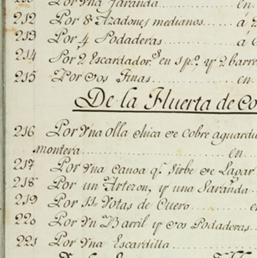 Por vna Zaranda ..... en
212 Por 8 Azadones medianos .. á
213 Por 4 Podaderas ........ á
214 Por 2 Escardador.s en 1 p.s y 2 barre
215 Por dos Tinas ........ en
De la Huerta de Co
216 Por vna olla chica de cobre aguardi
montera ........ en
217 Por vna Canoa q.e Sirbe de Lagar
218 Por un Arteson, y una Zaranda
219 Por 11 Botas de Cuero ..... en
220 Por vn Barril y dos Podaderas
221 Por vna Escardilla